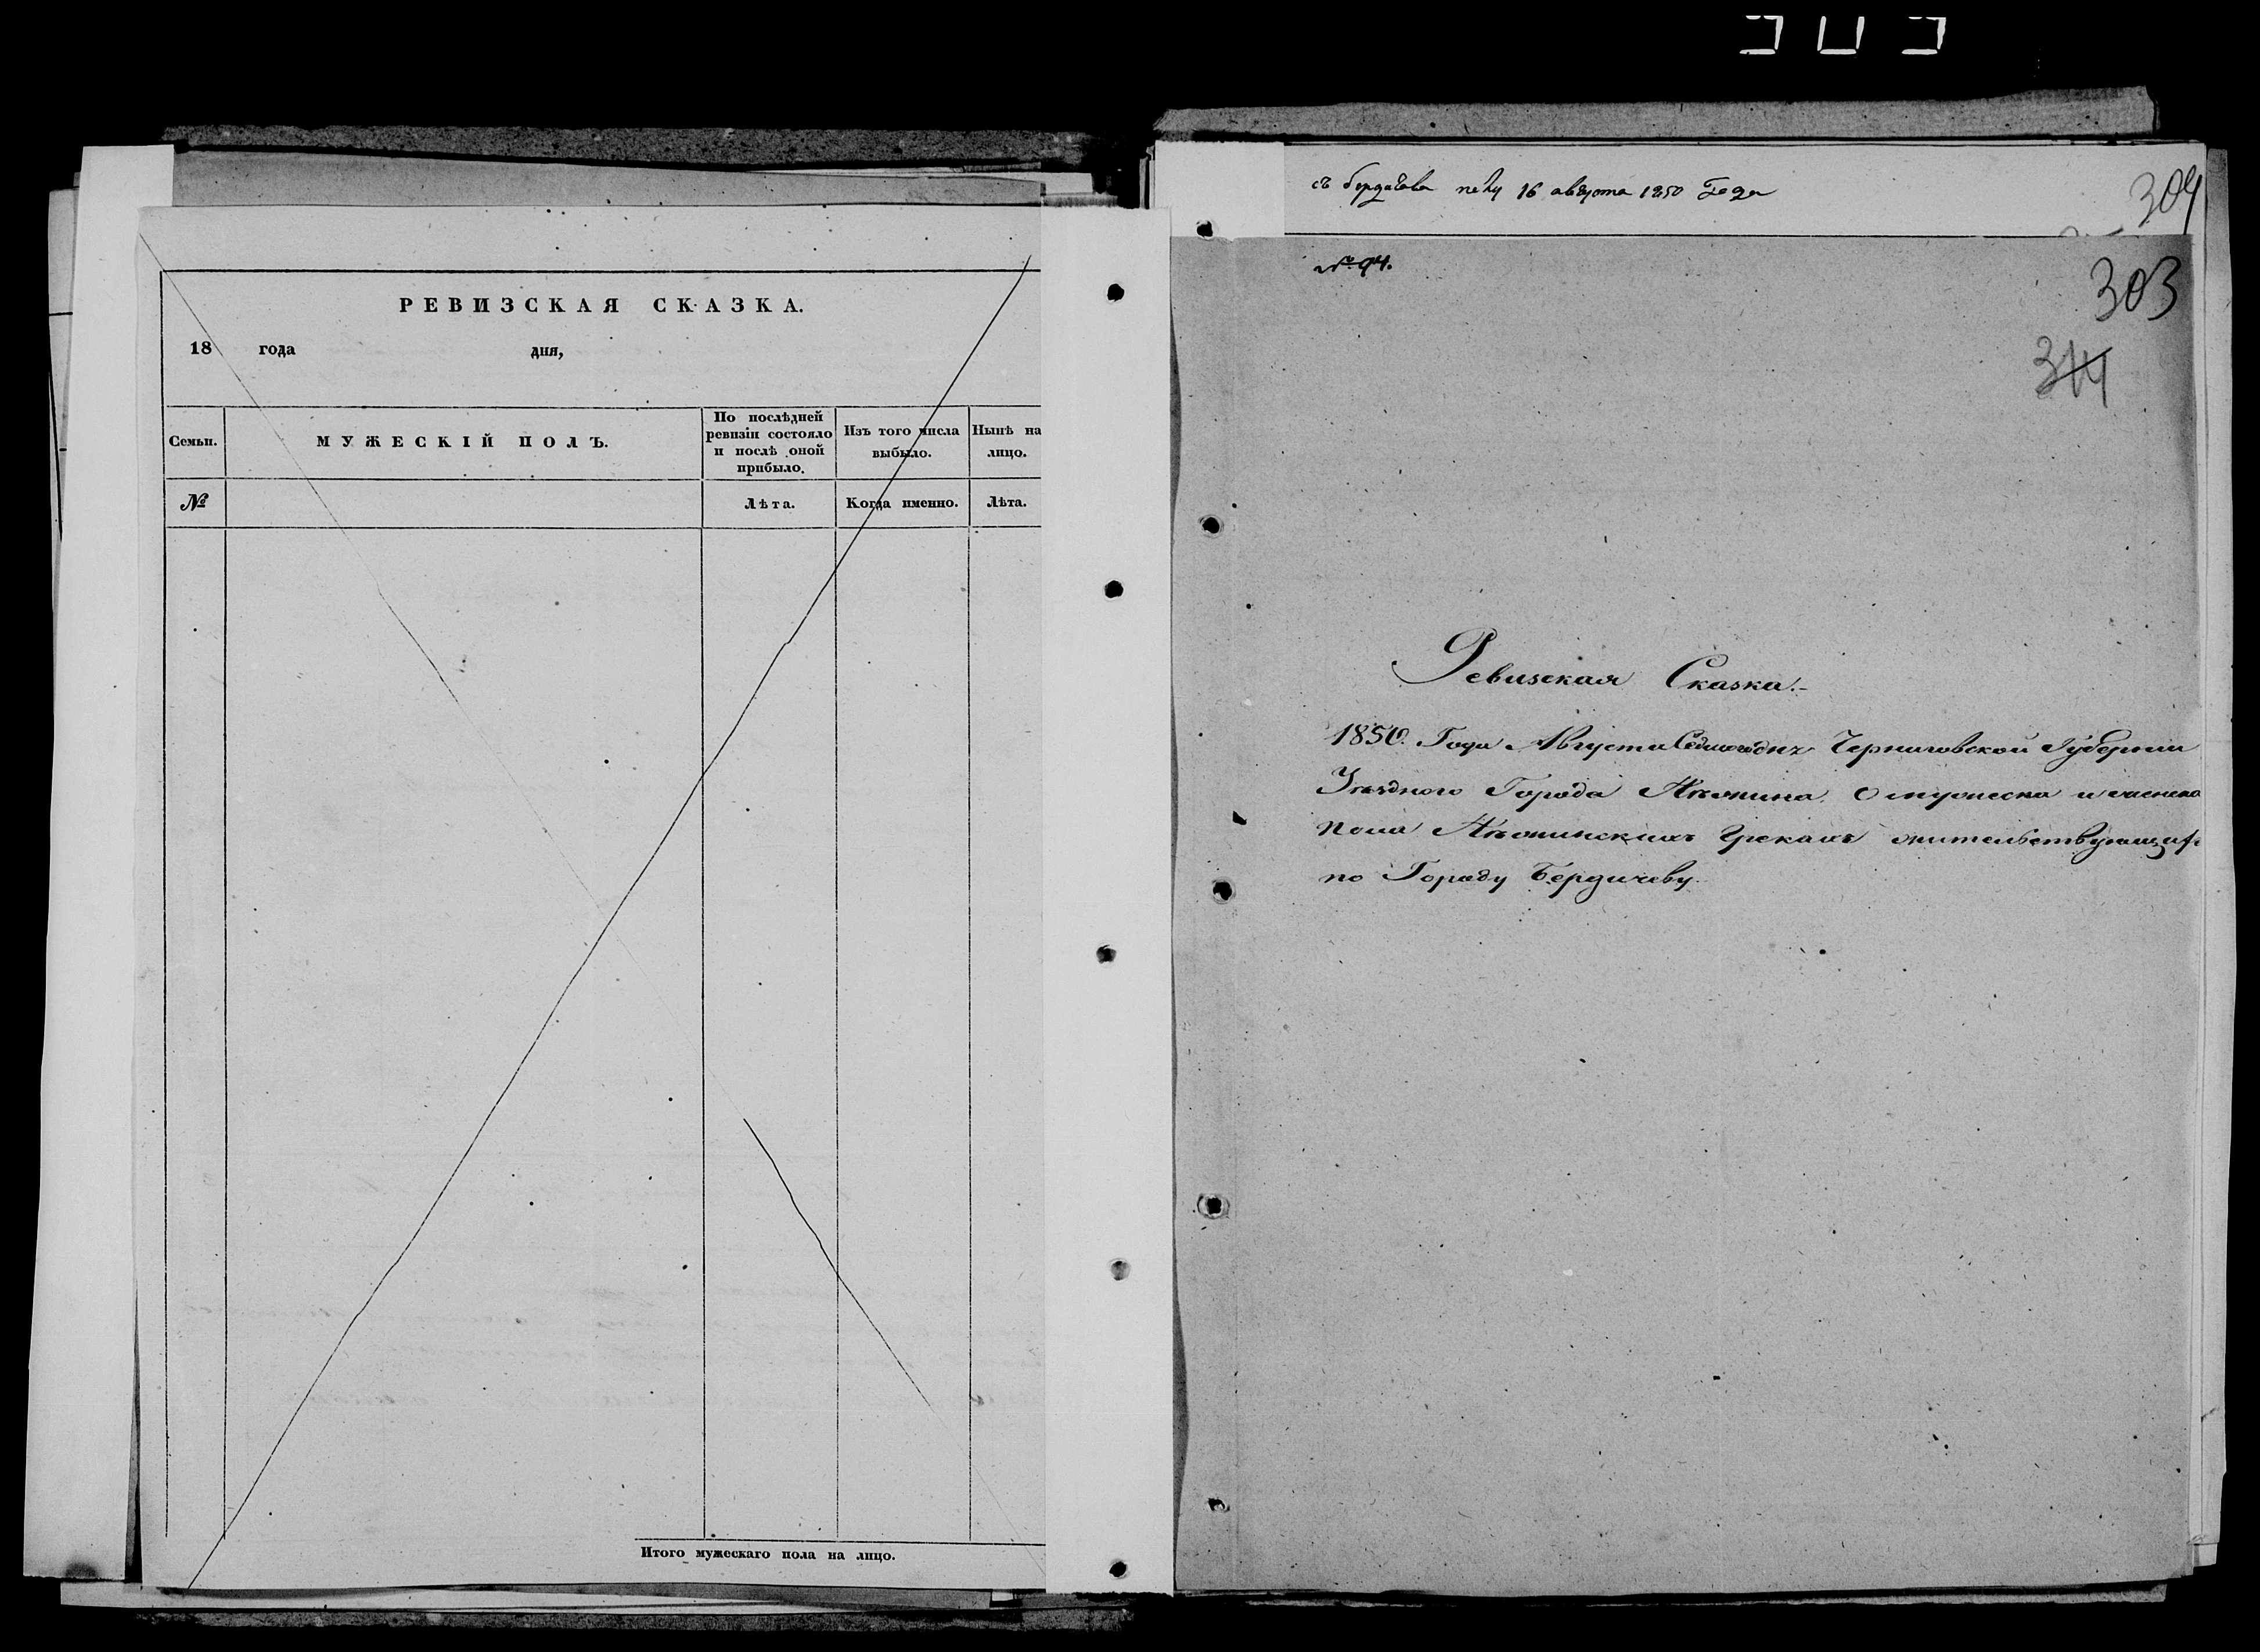 РЕВИЗСКАЯ СКАЗКА.
18 года дня,
Семьи.
МУЖЕСКІЙ ПОЛЪ.
По послѣдней ревизіи состояло и послѣ оной прибыло.
Изъ того числа выбыло.
Нынѣ на лицо.
№
Лѣта.
Когда именно.
Лѣта.
Итого мужескаго пола на лицо.
16 августа 1850 Года
304
№ 94.
303
314
Ревизская Сказка.
1850. Года Августа Седмогодня Черниговской Губернии
Уѣзднаго Города Нѣжина. О мужеска и женска
пола Нѣжинскихъ Грекахъ жительствующих
по Городу Бердичеву.